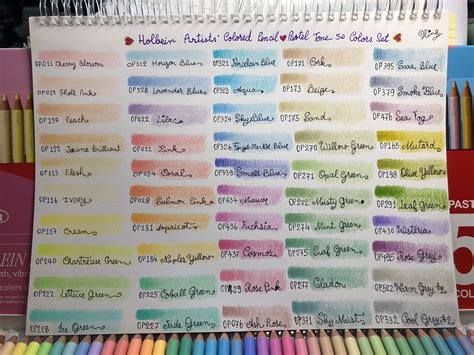 Holbein Artists' Colored Pencil ♥ Pastel Tone 50 Colors Set ♥
OP011 Cherry Blossom
OP019 Shell Pink
OP120 Peach
OP122 Jaune Brilliant
OP113 Flesh
OP116 Ivory
OP127 Cream
OP240 Chartreuse Green
OP222 Lettuce Green
OP228 Ice Green
OP312 Horizon Blue
OP328 Lavender Blue
OP422 Lilac
OP022 Pink
OP024 Coral
OP028 Salmon Pink
OP131 Apricot
OP184 Naples Yellow
OP225 Cobalt Green
OP227 Jade Green
OP321 Porcelain Blue
OP323 Aqua
OP324 Sky Blue
OP326 Forget-Me-Not Blue
OP339 Smalt Blue
OP434 Mauve
OP436 Fuchsia
OP437 Cosmos
OP429 Rose Pink
OP076 Ash Rose
OP171 Cork
OP173 Beige
OP175 Sand
OP270 Willow Green
OP271 Opal Green
OP272 Misty Green
OP274 Mint Green
OP275 Surf Green
OP277 Celadon
OP371 Sky Mist
OP395 Saxe Blue
OP379 Smoke Blue
OP476 Sea Fog
OP168 Mustard
OP198 Olive Yellow
OP291 Leaf Green
OP430 Wisteria
OP495 Rose Grey
OP502 Warm Grey
OP532 Cool Grey
PAST
5